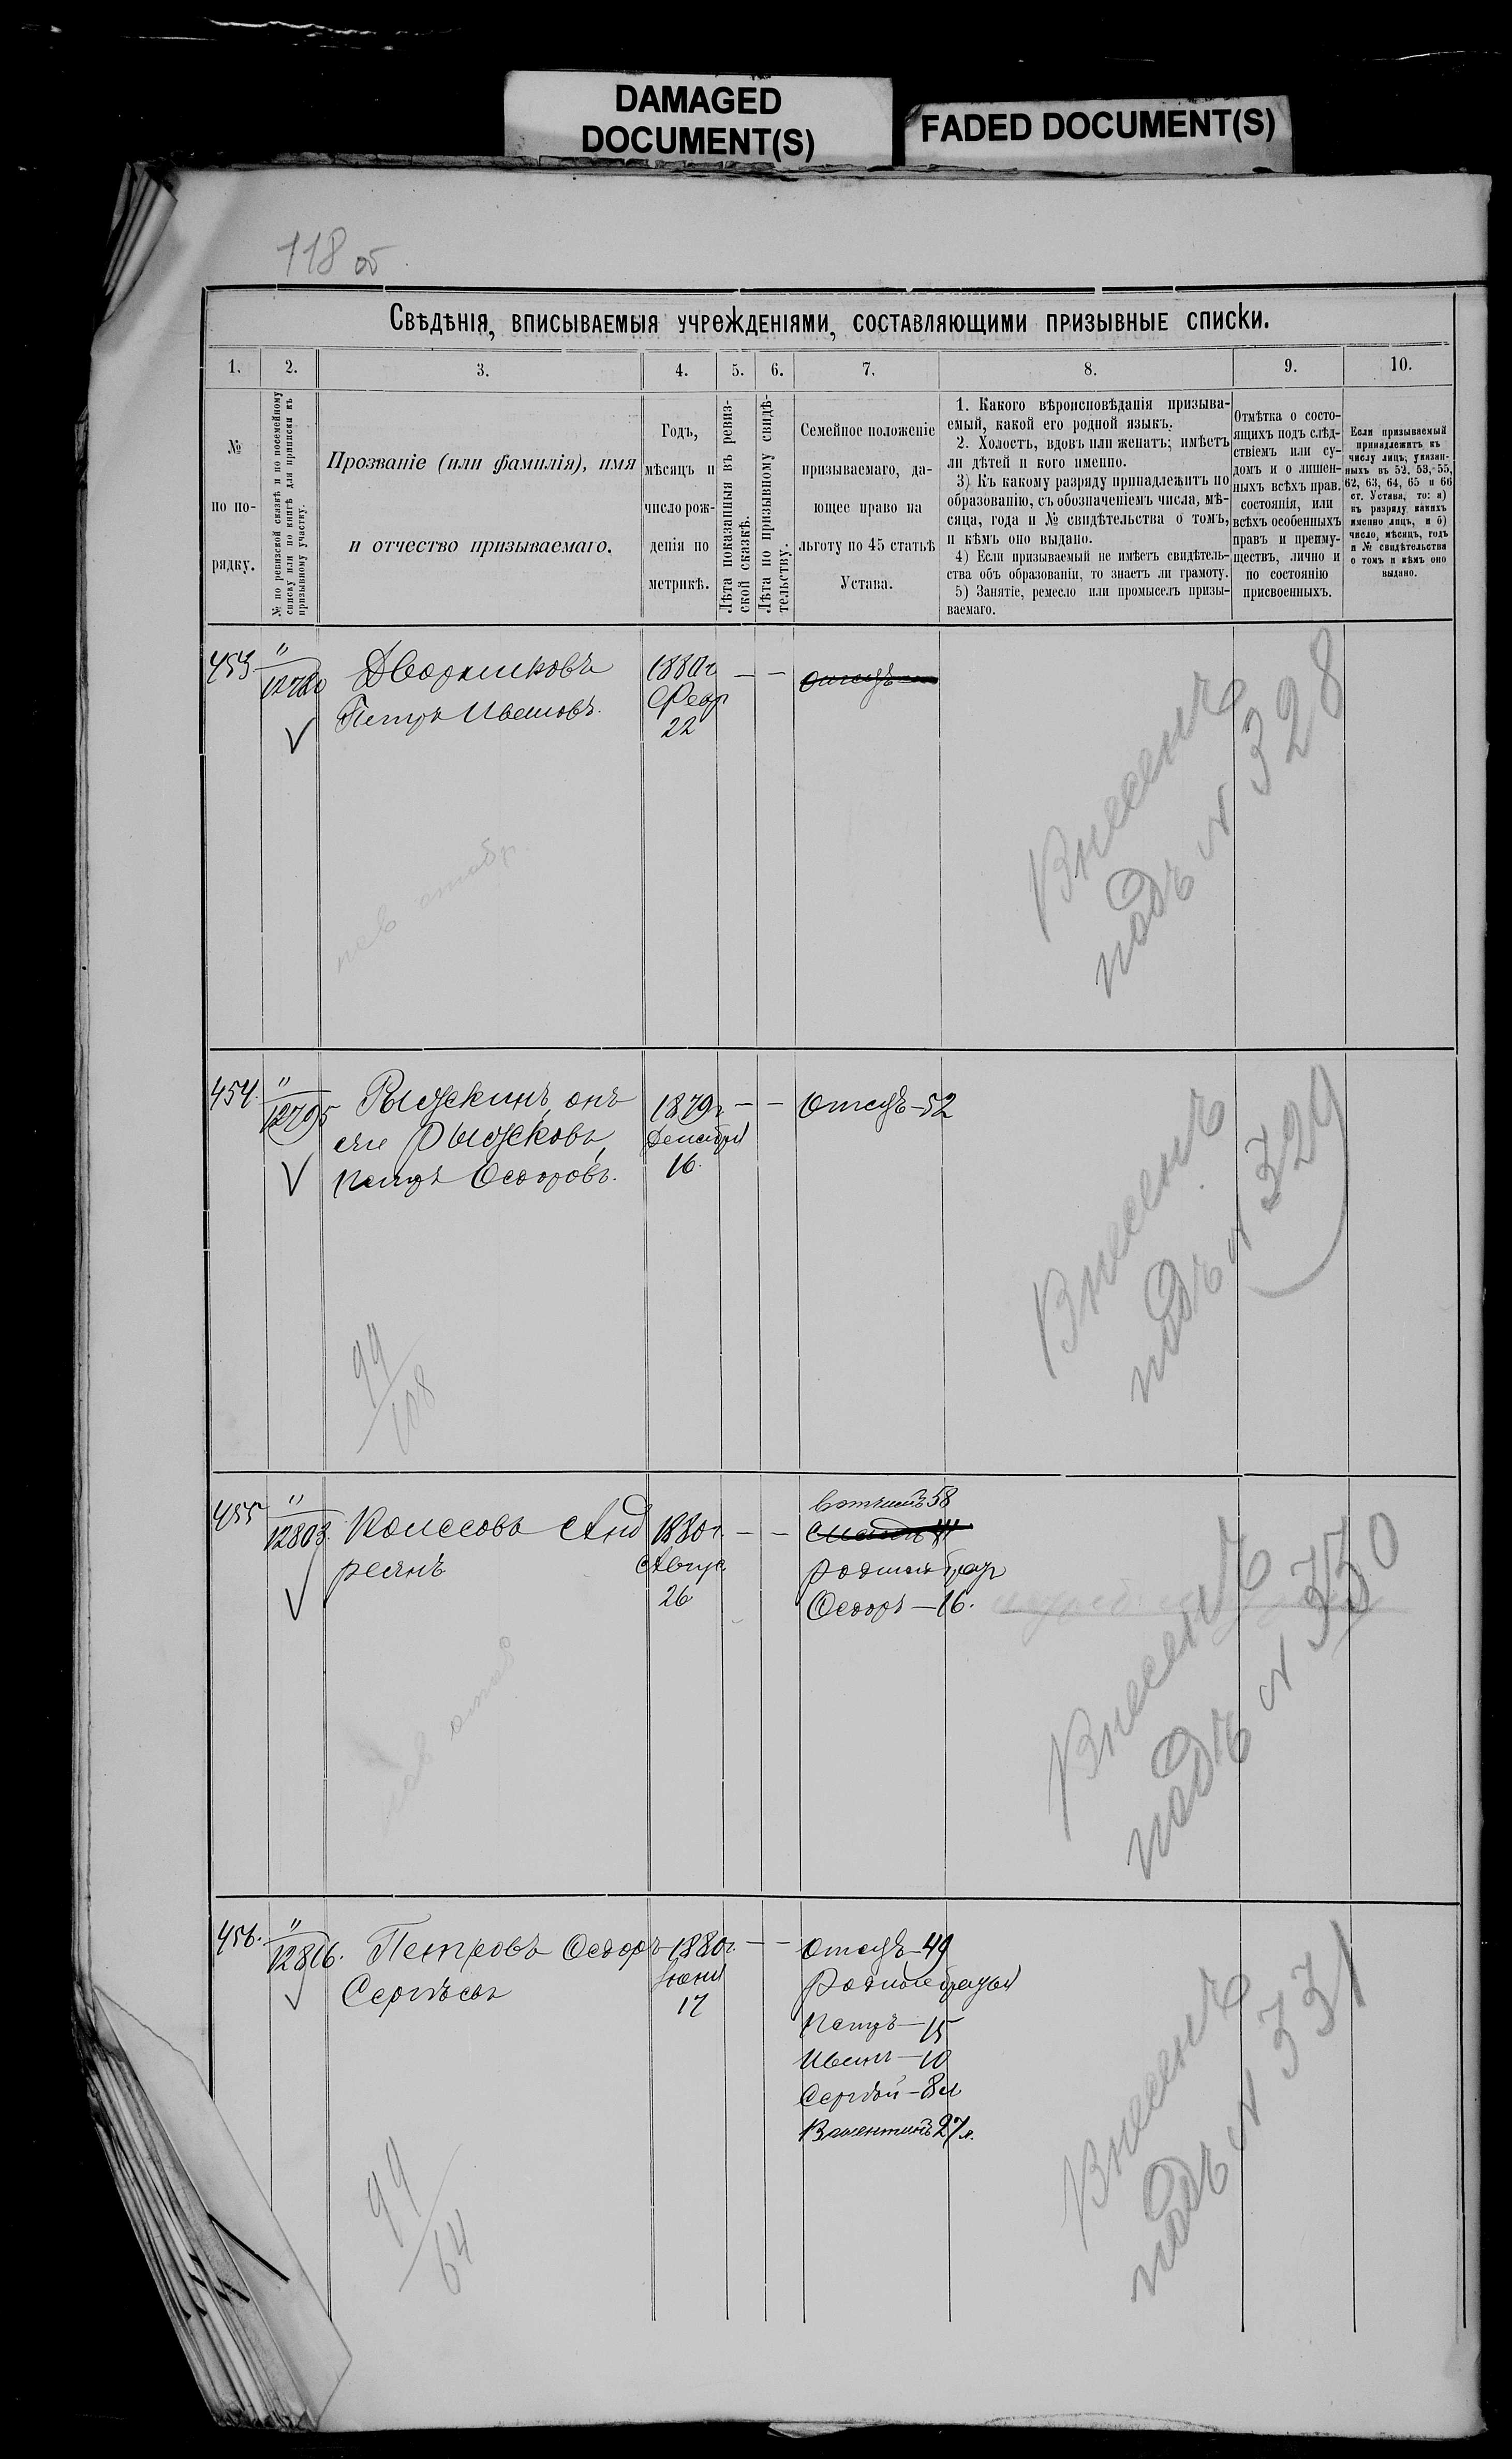 DAMAGED
DOCUMENT(S)
FADED DOCUMENT(S)
118 об
Свѣдѣнія, вписываемыя учрежденіями, составляющими призывные списки.
1. 2. 3. 4. 5. 6. 7. 8. 9. 10.
№
по по-
рядку.
№ по ревизской сказкѣ и по посемейному
списку или по книгѣ для приписки къ
призывному участку.
Прозваніе (или фамилія), имя
и отчество призываемаго.
Годъ,
мѣсяцъ и
число рож-
денія по
метрикѣ.
Лѣта показанныя въ ревиз-
ской сказкѣ.
Лѣта по призывному свидѣ-
тельству.
Семейное положеніе
призываемаго, да-
ющее право на
льготу по 45 статьѣ
Устава.
1. Какого вѣроисповѣданія призыва-
емый, какой его родной языкъ.
2. Холостъ, вдовъ или женатъ; имѣетъ
ли дѣтей и кого именно.
3) Къ какому разряду принадлежитъ по
образованію, съ обозначеніемъ числа, мѣ-
сяца, года и № свидѣтельства о томъ,
и кѣмъ оно выдано.
4) Если призываемый не имѣетъ свидѣтель-
ства объ образованіи, то знаетъ ли грамоту.
5) Занятіе, ремесло или промыселъ призы-
ваемаго.
Отмѣтка о состо-
ящихъ подъ слѣд-
ствіемъ или су-
домъ и о лишен-
ныхъ всѣхъ прав.
состоянія, или
всѣхъ особенныхъ
правъ и преиму-
ществъ, лично и
по состоянію
присвоенныхъ.
Если призываемый
принадлежитъ къ
числу лицъ, указан-
ныхъ въ 52, 53, 55,
62, 63, 64, 65 и 66
ст. Устава, то: а)
къ разряду какихъ
именно лицъ, и б)
число, мѣсяцъ, годъ
и № свидѣтельства
о томъ и кѣмъ оно
выдано.
453 " Дворниковъ 1880г — — отецъ
12780 Петръ Ивановъ. Февр
22
Внесенъ
подъ № 328
454. " Рыжкинъ, онъ 1879г — — отецъ—52
12795 же Рыжковъ, Декабря
Петръ Ѳедоровъ. 16.
Внесенъ
подъ № 329
99
108
455 " Колесовъ Анд 1880г. — — вотчимъ 58
12803. реянъ Авгус.
26
родной брат
Ѳедоръ—16.
Внесенъ
подъ № 330
456. " Петровъ Ѳедоръ 1880г. — — отецъ—49
12816. Сергѣевъ Іюня родные братья
17
Петръ—15
Иванъ—10
Сергѣй—8л
Валентинъ 2½л.
Внесенъ
подъ № 331
99
64